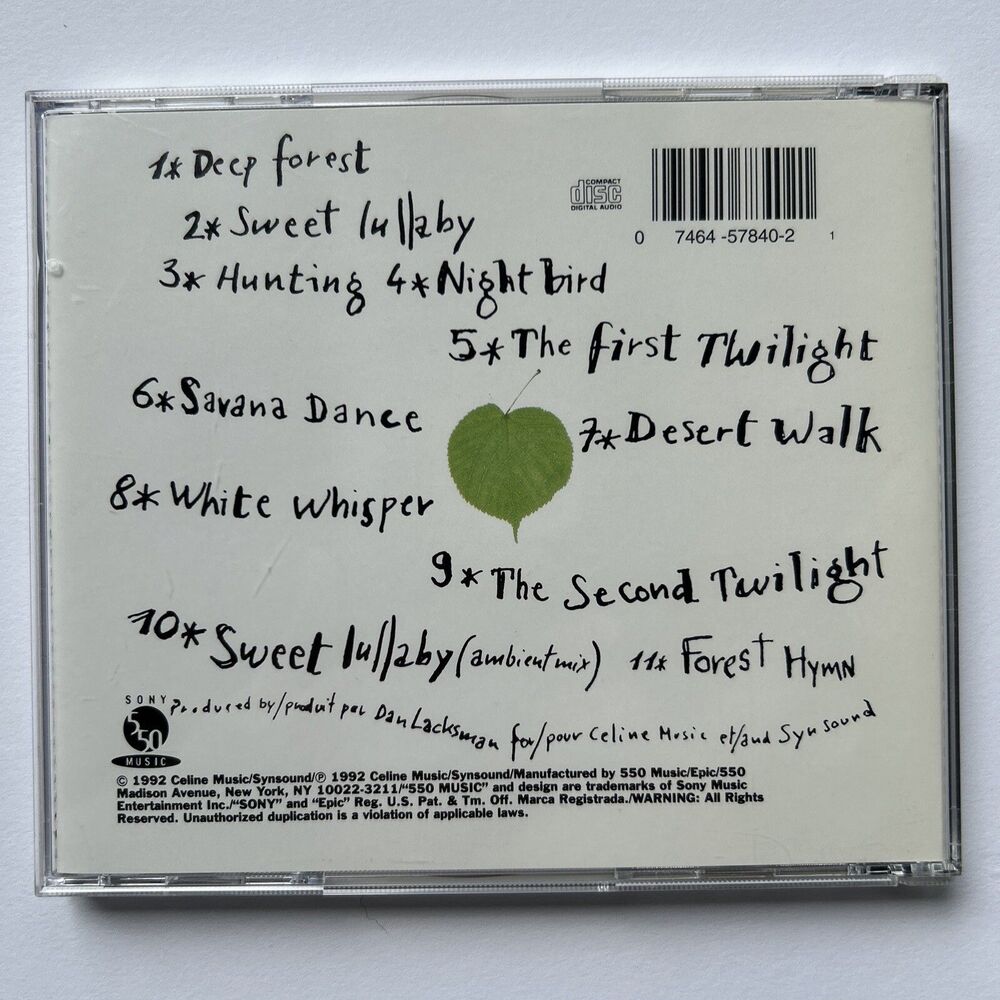 1* Deep forest
COMPACT
disc
DIGITAL AUDIO
2* Sweet lullaby
0 7464-57840-2 1
3* Hunting 4* Night bird
5* The first Twilight
6* Savana Dance
7* Desert Walk
8* White Whisper
9* The Second Twilight
10* Sweet lullaby (ambient mix) 11* Forest HYMN
SONY
550
MUSIC
Produced by/produit par Dan Lacksman for/pour Celine Music et/and Synsound
© 1992 Celine Music/Synsound/℗ 1992 Celine Music/Synsound/Manufactured by 550 Music/Epic/550
Madison Avenue, New York, NY 10022-3211/"550 MUSIC" and design are trademarks of Sony Music
Entertainment Inc./"SONY" and "Epic" Reg. U.S. Pat. & Tm. Off. Marca Registrada./WARNING: All Rights
Reserved. Unauthorized duplication is a violation of applicable laws.